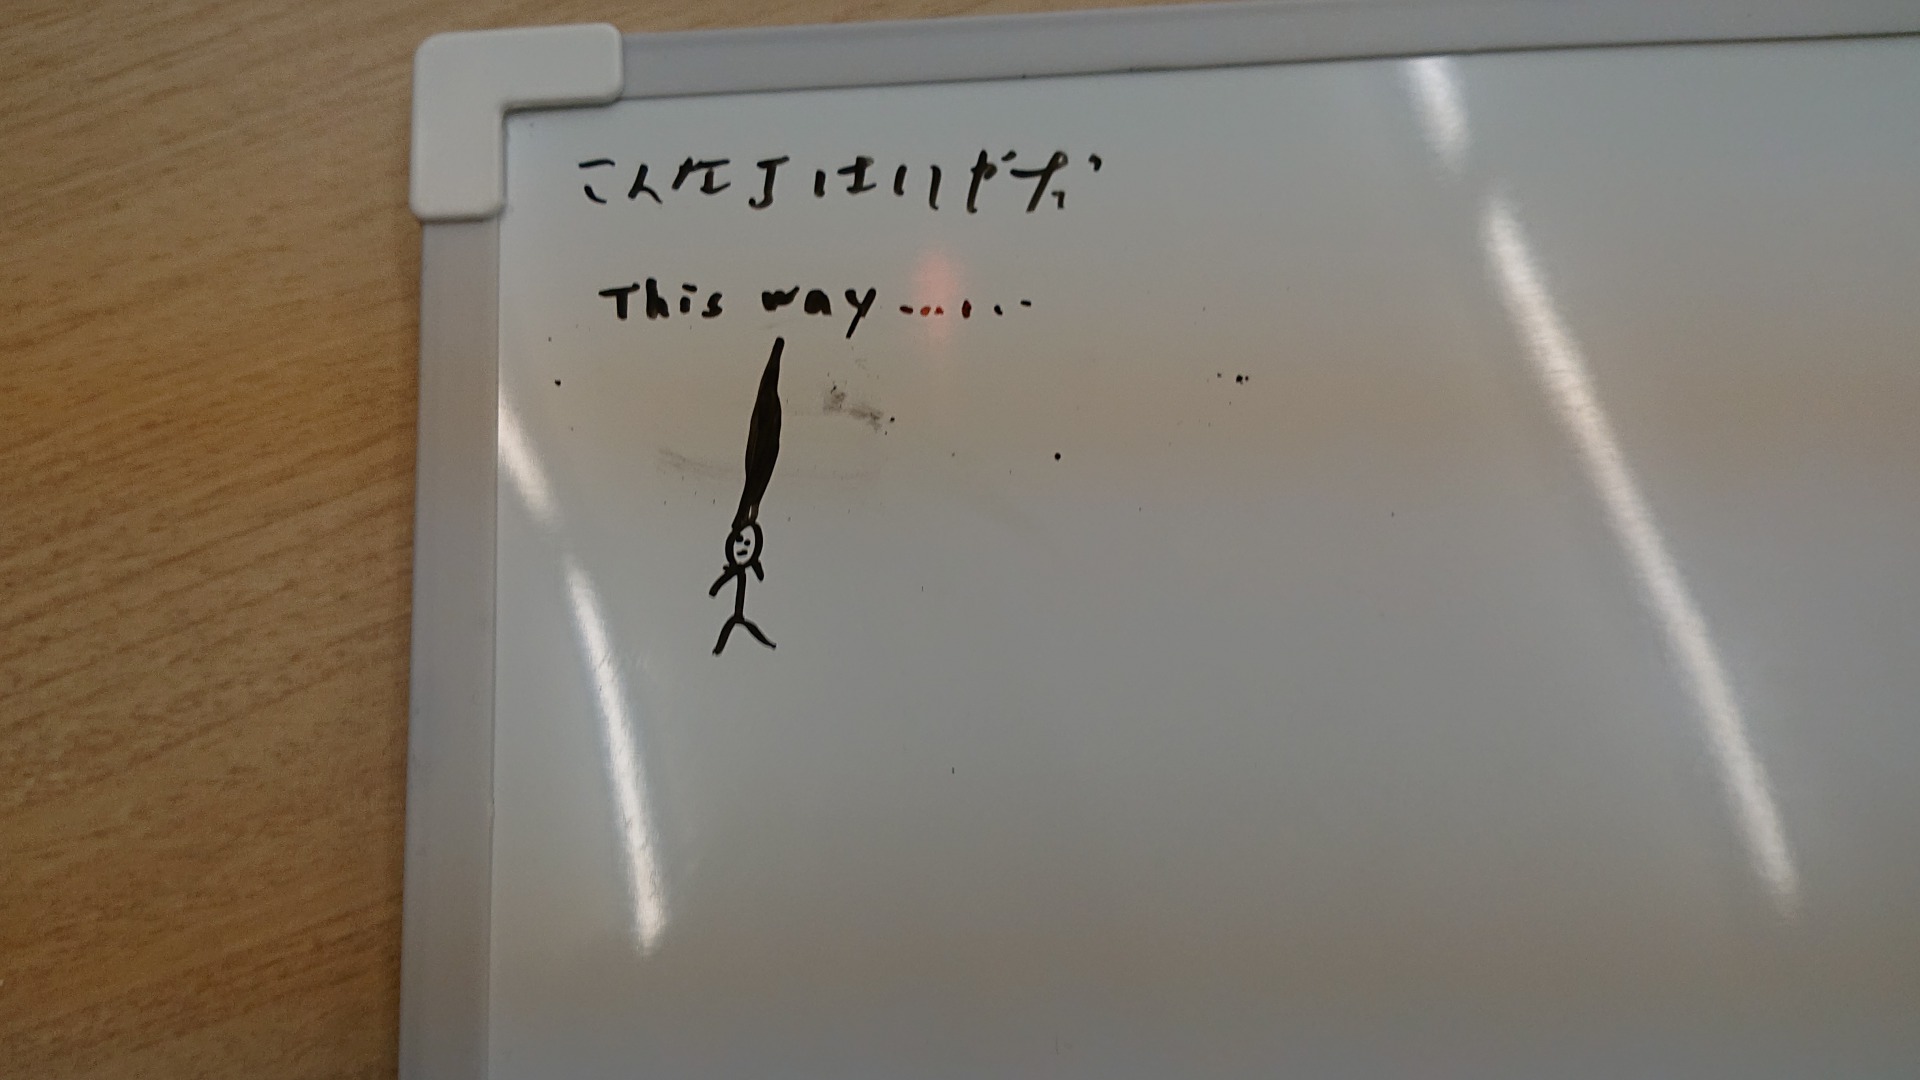 こんなJはいやだ
This way ......